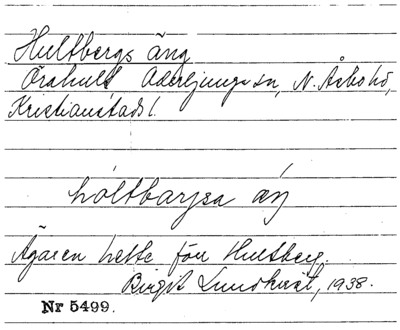 Hultbergs äng
Örahult Oderljunga sn, N. Åsbo hd,
Kristianstads l.
holtbarjsa äŋ
Ägaren hette förr Hultberg.
Birgit Lundkvist, 1938.
Nr 5499.